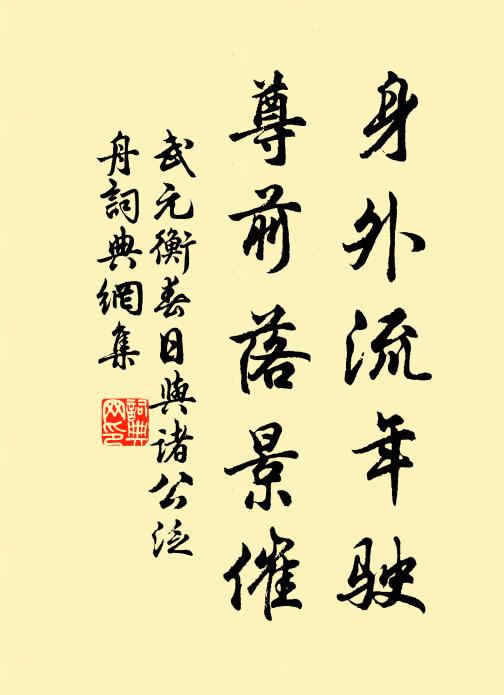 身外流年駛
尊前落景催
武元衡春日與諸公泛
舟詞典網集
詞典
网印